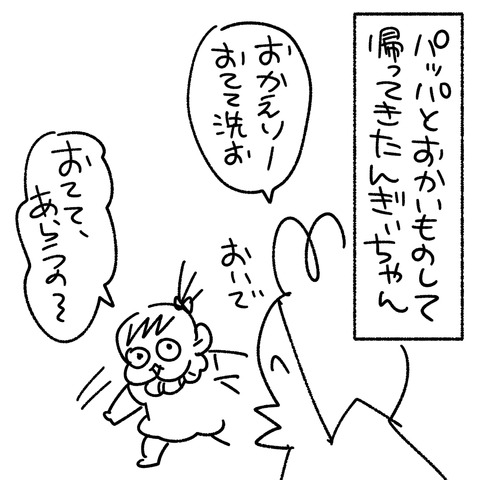 パッパとおかいものして
帰ってきたんぎぃちゃん
おかえりー
おてて洗お
おいで
おてて、
あらうの〜